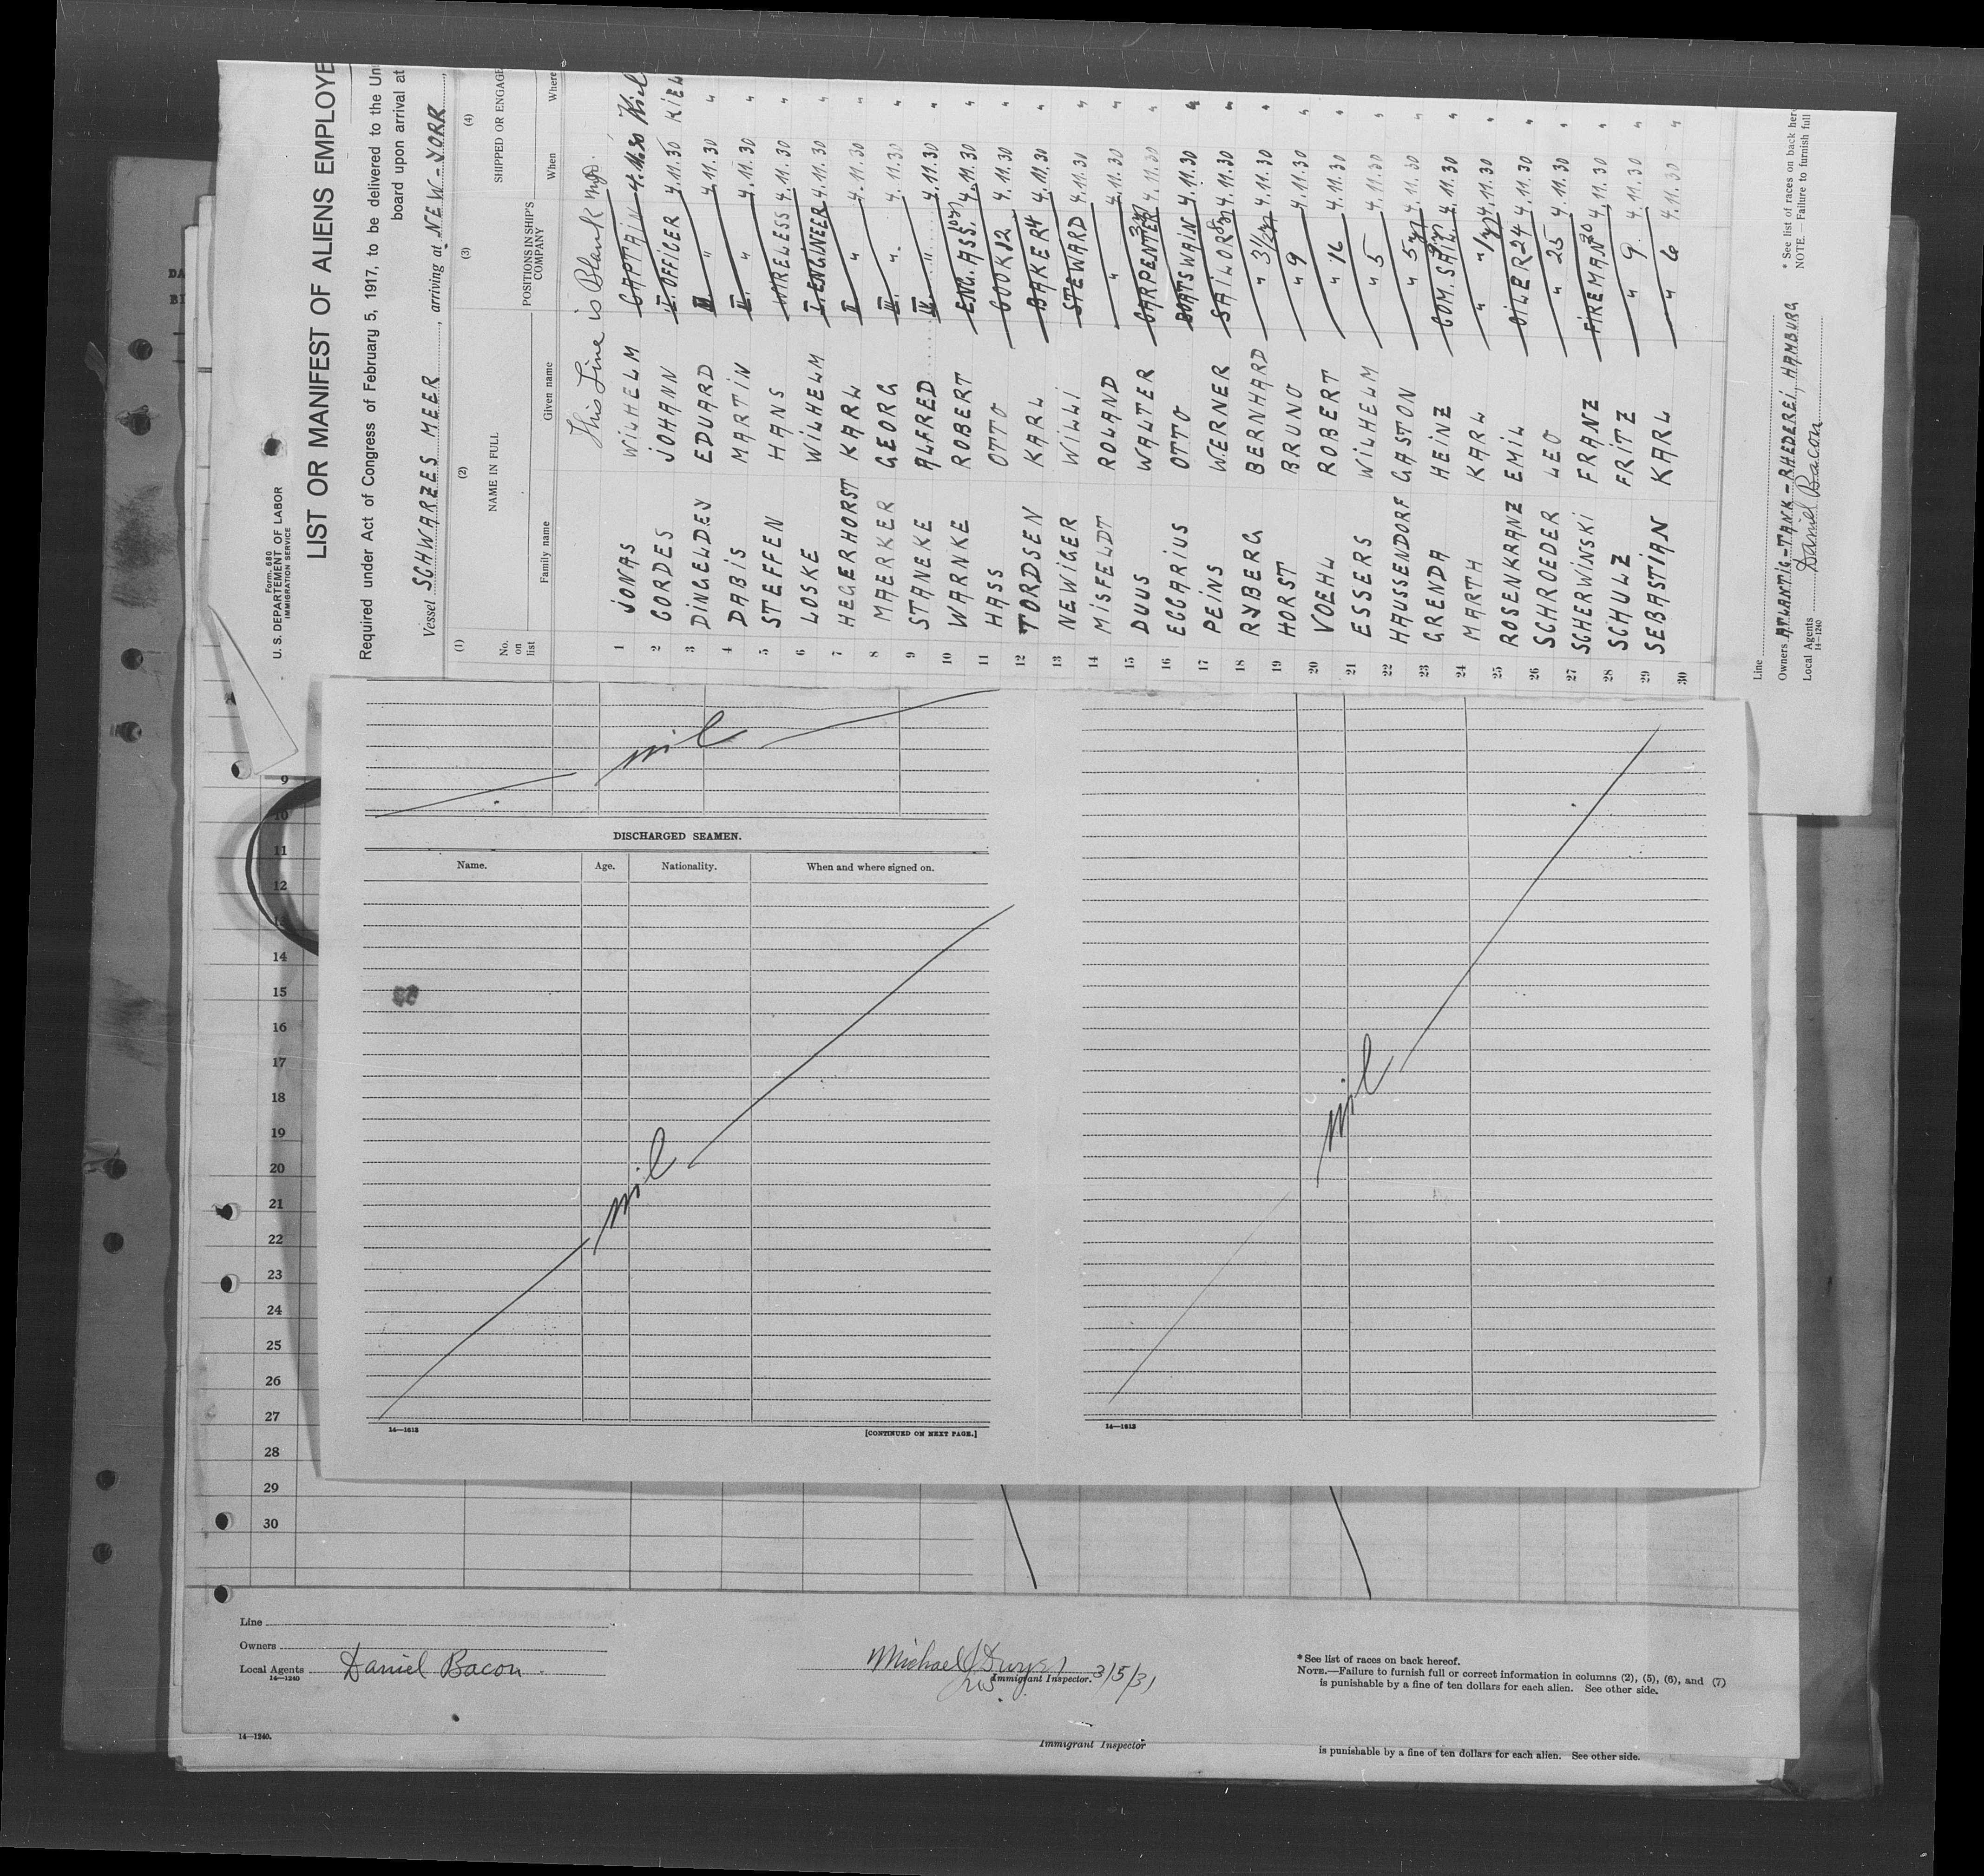 Form 680
U. S. DEPARTMENT OF LABOR
IMMIGRATION SERVICE
LIST OR MANIFEST OF ALIENS EMPLOYE
Required under Act of Congress of February 5, 1917, to be delivered to the Uni
board upon arrival at
Vessel SCHWARZES MEER, arriving at NEW-YORK
(1) (2) (3) (4)
No. on list NAME IN FULL POSITIONS IN SHIP'S COMPANY SHIPPED OR ENGAGE
Family name Given name When Where
This Line is Blank
1 JONAS WILHELM CAPTAIN 4.11.30 Kiel
2 CORDES JOHANN I. OFFICER 4.11.30 KIEL
3 DINGELDEY EDUARD II " 4.11.30 "
4 DABIS MARTIN II. " 4.11.30 "
5 STEFFEN HANS WIRELESS 4.11.30 "
6 LOSKE WILHELM I. ENGINEER 4.11.30 "
7 HEGERHORST KARL II " 4.11.30 "
8 MAERKER GEORG III. " 4.11.30 "
9 STANEKE ALFRED IV. " 4.11.30 "
10 WARNKE ROBERT ENG. ASS. 4.11.30 "
11 HASS OTTO COOK 12 4.11.30 "
12 TORDSEN KARL BAKER 4 4.11.30 "
13 NEWIGER WILLI STEWARD 4.11.30 "
14 MISFELDT ROLAND " 4.11.30 "
15 DUUS WALTER CARPENTER 4.11.30 "
16 EGGARIUS OTTO BOATSWAIN 4.11.30 "
17 PEINS WERNER SAILOR 4.11.30 "
18 RYBERG BERNHARD " 3½ 4.11.30 "
19 HORST BRUNO " 9 4.11.30 "
20 VOEHL ROBERT " 16 4.11.30 "
21 ESSERS WILHELM " 5 4.11.30 "
22 HAUSSENDORF GASTON " 5 4.11.30 "
23 GRENDA HEINZ COM. SAIL. 4.11.30 "
24 MARTH KARL " 4.11.30 "
25 ROSENKRANZ EMIL OILER 24 4.11.30 "
26 SCHROEDER LEO " 25 4.11.30 "
27 SCHERWINSKI FRANZ FIREMAN 4.11.30 "
28 SCHULZ FRITZ " 9 4.11.30 "
29 SEBASTIAN KARL " 6 4.11.30 "
30
Line
Owners ATLANTIC-TANK-RHEDEREI, HAMBURG
Local Agents Daniel Bacon
14—1240
* See list of races on back here
NOTE.—Failure to furnish full
nil
DISCHARGED SEAMEN.
Name. Age. Nationality. When and where signed on.
nil
14—1613
[CONTINUED ON NEXT PAGE.]
nil
14—1613
9
10
11
12
13
14
15
16
17
18
19
20
21
22
23
24
25
26
27
28
29
30
Line
Owners
Local Agents Daniel Bacon
14—1240
Michael
Immigrant Inspector. 3/5/31
* See list of races on back hereof.
NOTE.—Failure to furnish full or correct information in columns (2), (5), (6), and (7)
is punishable by a fine of ten dollars for each alien. See other side.
14—1240.
Immigrant Inspector
is punishable by a fine of ten dollars for each alien. See other side.